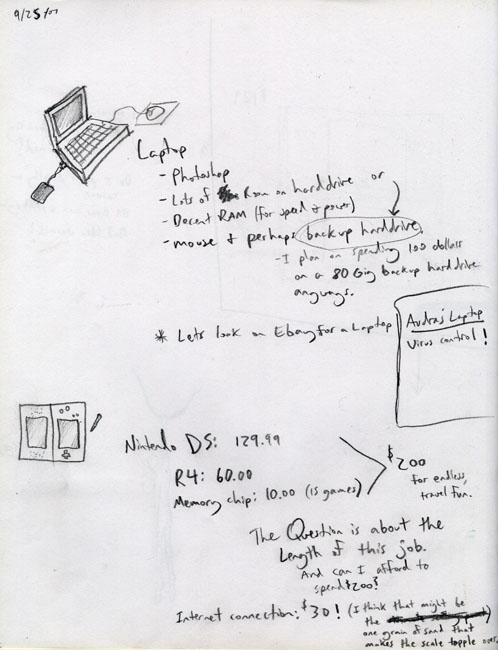 9/25/07
Laptop
- Photoshop
- Lots of Room on harddrive or
- Decent RAM (for speed + power)
- mouse + perhaps backup harddrive.
- I plan on spending 100 dollars
on a 80 Gig backup harddrive
anyways.
* Lets look on Ebay for a Laptop
Audra's Laptop
Virus control!
Nintendo DS: 129.99
R4: 60.00
Memory chip: 10.00 (15 games)
$200
for endless
travel fun.
The Question is about the
Length of this job.
And can I afford to
spend $200?
Internet connection: $30! (I think that might be
the
one grain of sand that
makes the scale topple over.)